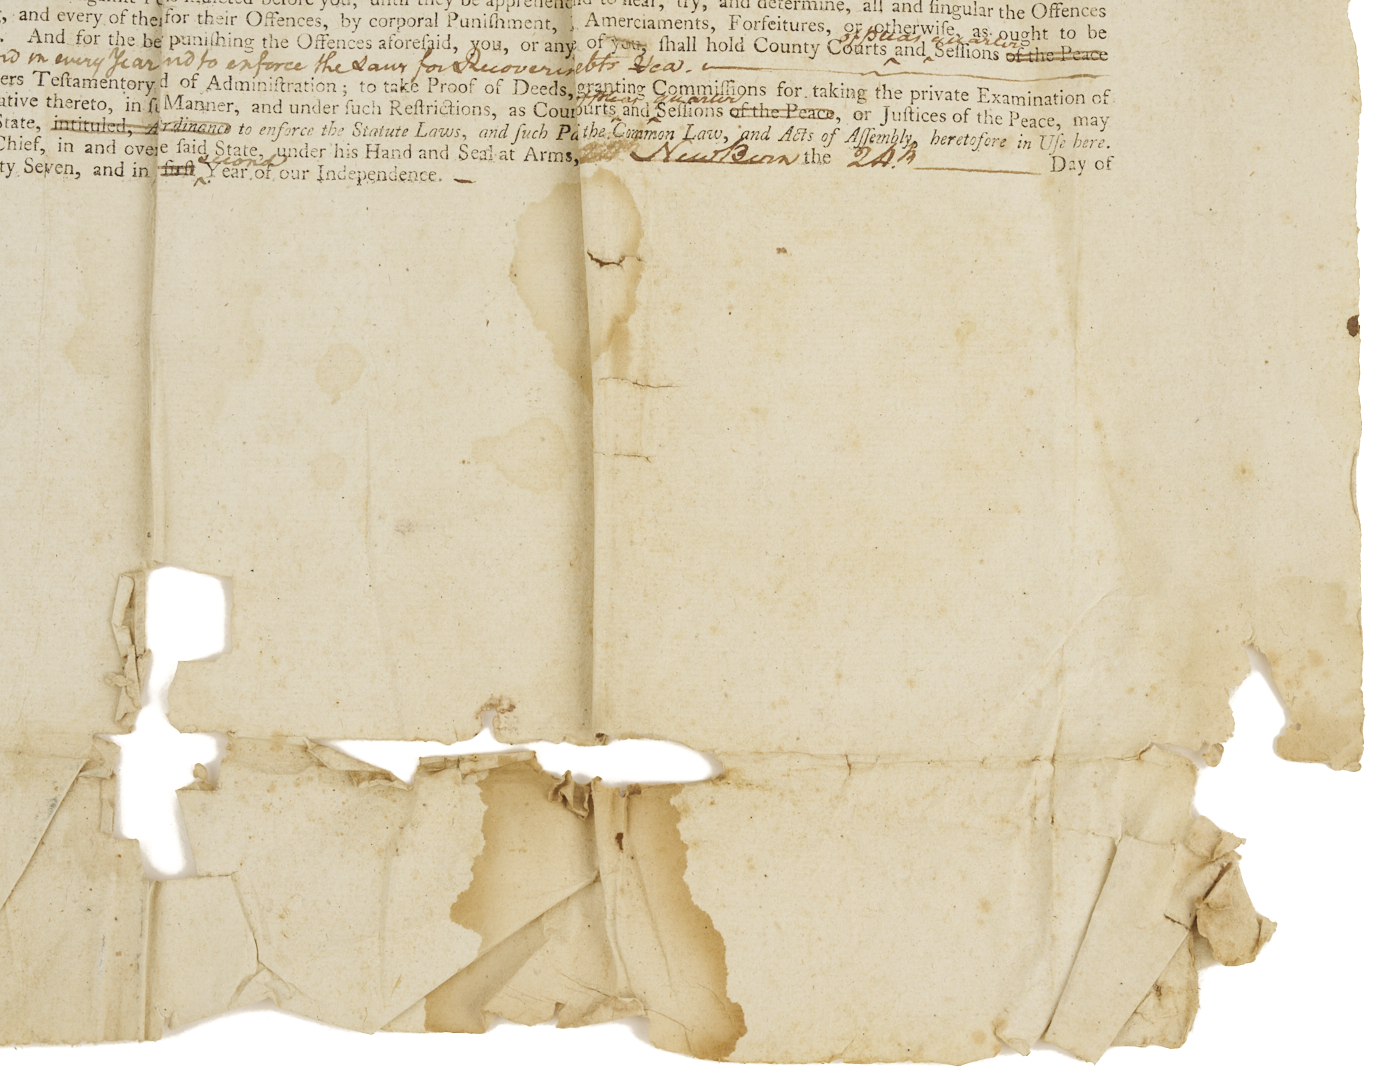 and every of the for their Offences, by corporal Punishment, Amerciaments, Forfeitures, or otherwise, as ought to be
And for the be puniſhing the Offences aforeſaid, you, or any of you, ſhall hold County Courts and Seſſions of the Peace
in every Year nd to enforce the Laws for Recoverin ebts &ca.
ers Teſtamentory d of Adminiſtration; to take Proof of Deeds, granting Commiſſions for taking the private Examination of
ative thereto, in ſ Manner, and under ſuch Reſtrictions, as Cour ourts and Seſſions of the Peace, or Juſtices of the Peace, may
State, intituled, Ardinance to enforce the Statute Laws, and ſuch Pa the Common Law, and Acts of Aſſembly, heretofore in Uſe here.
Chief, in and ove e ſaid State, under his Hand and Seal at Arms, New Bern the 24th Day of
ty Seven, and in firſt second Year of our Independence.